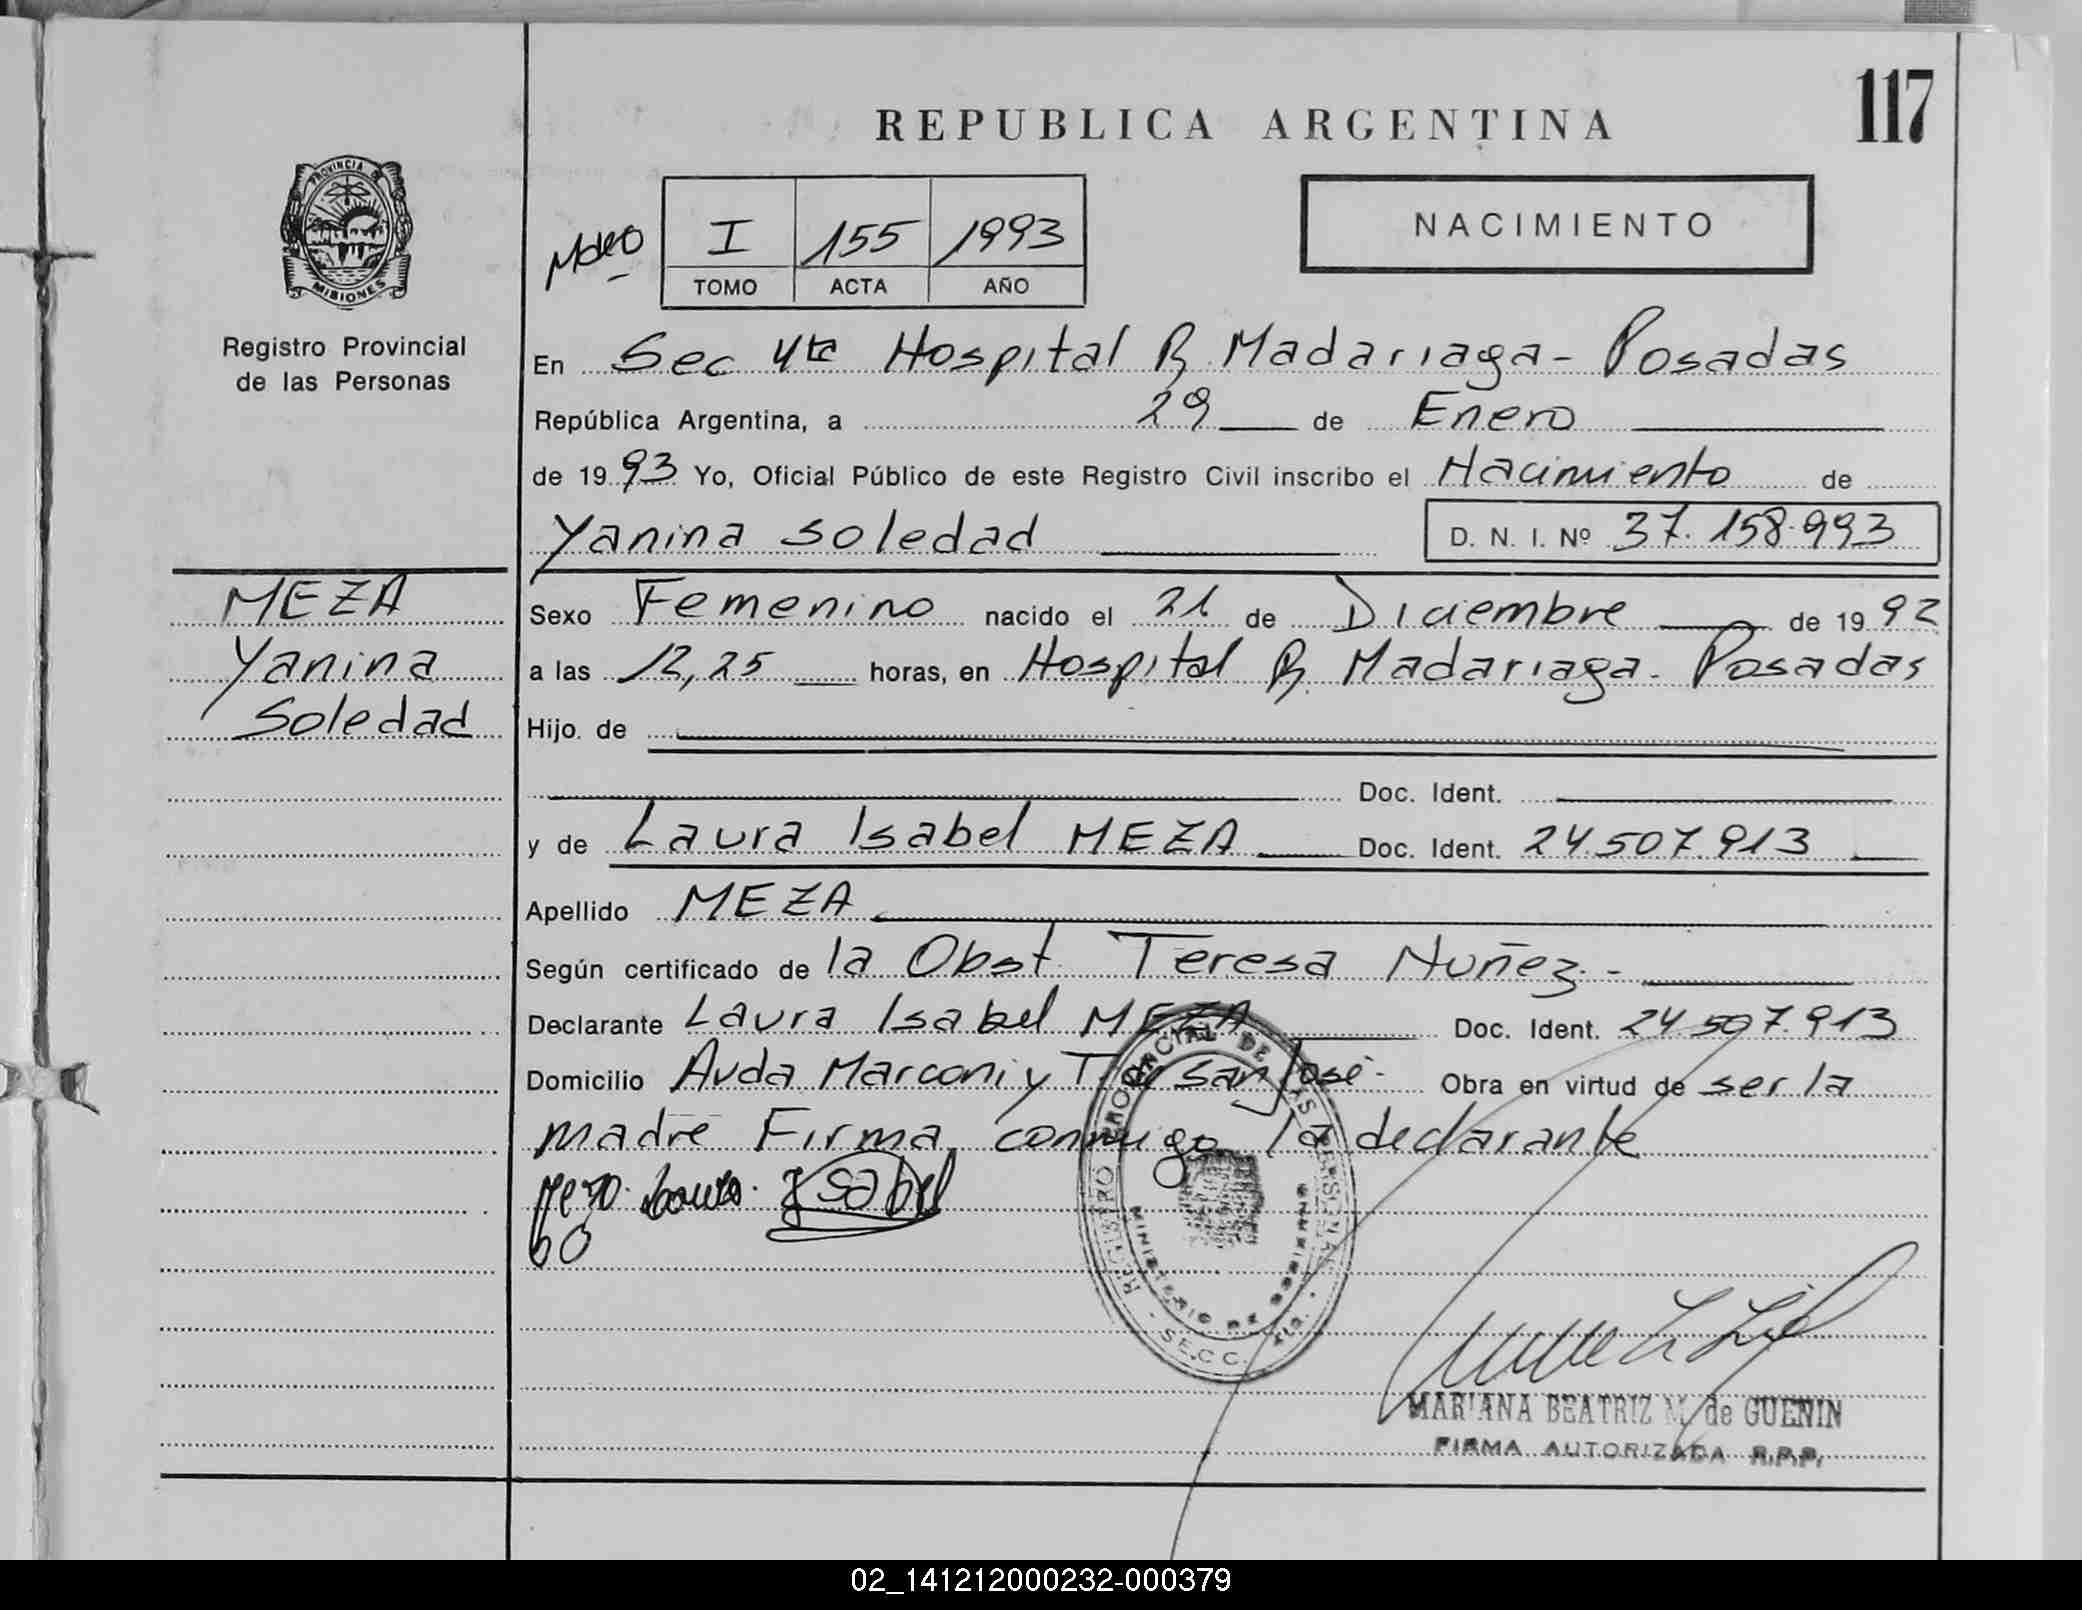 117
REPUBLICA ARGENTINA
PROVINCIA DE
MISIONES
NACIMIENTO
I 155 1993
TOMO ACTA AÑO
Registro Provincial
de las Personas
En Sec 4ta Hospital R. Madariaga - Posadas
República Argentina, a 29 de Enero
de 1993 Yo, Oficial Público de este Registro Civil inscribo el Nacimiento de
Yanina Soledad D. N. I. Nº 37.158.993
MEZA
Yanina
Soledad
Sexo Femenino nacido el 21 de Diciembre de 1992
a las 12,25 horas, en Hospital R. Madariaga. Posadas
Hijo de
Doc. Ident.
y de Laura Isabel MEZA Doc. Ident. 24.507.913
Apellido MEZA
Según certificado de la Obst. Teresa Nuñez.-
Declarante Laura Isabel MEZA Doc. Ident. 24.507.913
Domicilio Avda Marconi y San José- Obra en virtud de ser la
madre Firma conmigo la declarante
Meza Laura Isabel
REGISTRO PROVINCIAL DE LAS PERSONAS
MINISTERIO DE GOBIERNO
SECC. 4ta.
MARIANA BEATRIZ M. de GUENIN
FIRMA AUTORIZADA R.P.P.
02_141212000232-000379